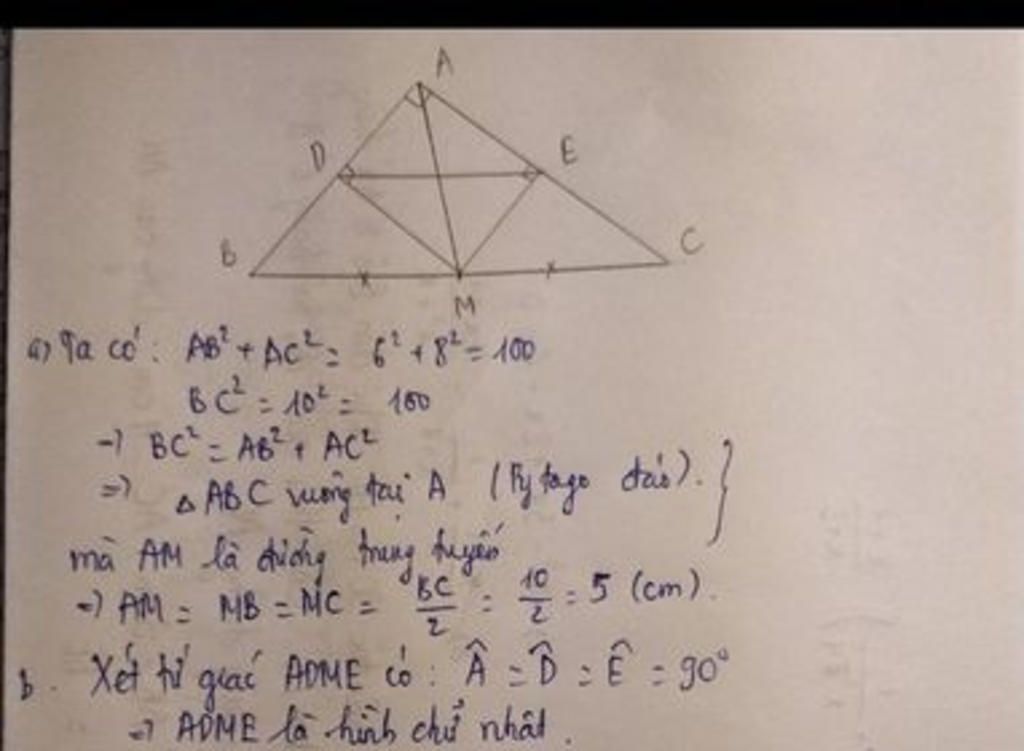 A
D E
B C
M
a) Ta có: AB² + AC² = 6² + 8² = 100
BC² = 10² = 100
→ BC² = AB² + AC²
=> △ABC vuông tại A (Pytago đảo). }
mà AM là đường trung tuyến
=> AM = MB = MC = BC/2 = 10/2 = 5 (cm).
b. Xét tứ giác ADME có: Â = D̂ = Ê = 90°
=> ADME là hình chữ nhật.